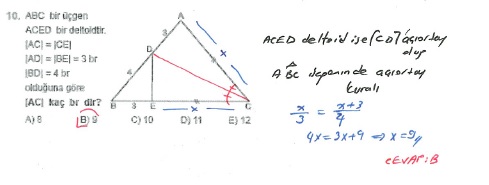 10. ABC bir üçgen
ACED bir deltoidtir.
|AC| = |CE|
|AD| = |BE| = 3 br
|BD| = 4 br
olduğuna göre
|AC| kaç br dir?
A) 8 B) 9 C) 10 D) 11 E) 12
A
3
x
D
4
B 3 E x C
ACED deltoid ise [CD] açıortay
olup
ABC üçgeninde açıortay
kuralı
x/3 = x+3/4
4x = 3x+9 ⇒ x=9
CEVAP: B